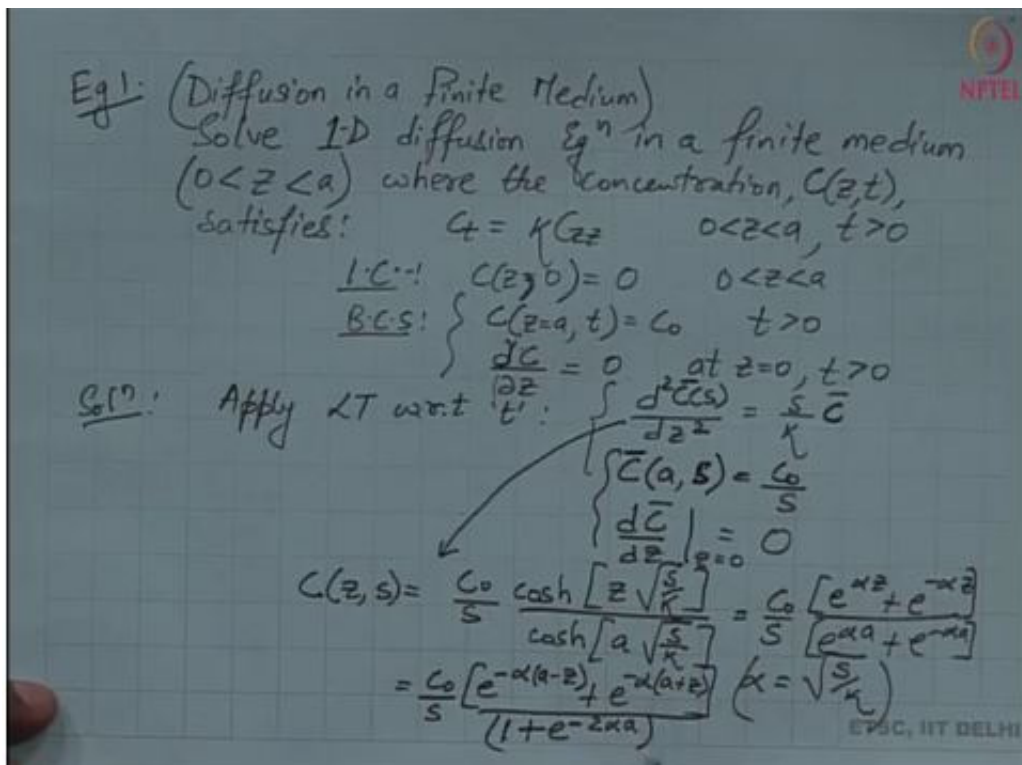 NPTEL
Eg 1: (Diffusion in a Finite Medium)
Solve 1-D diffusion Eqⁿ in a finite medium
(0<z<a) where the concentration, C(z,t),
satisfies: Ct = κCzz 0<z<a, t>0
I.C.: C(z,0)=0 0<z<a
B.C.S: { C(z=a, t) = C₀ t>0
∂C/∂z = 0 at z=0, t>0
Solⁿ: Apply LT w.r.t 't': { d²C̄(s)/dz² = s/κ C̄
{ C̄(a, s) = C₀/s
dC̄/dz |z=0 = 0
C(z,s) = C₀/s cosh[z√(s/κ)]/cosh[a√(s/κ)] = C₀/s [e^{αz} + e^{-αz}]/[e^{αa} + e^{-αa}]
= C₀/s [e^{-α(a-z)} + e^{-α(a+z)}]/(1+e^{-2αa}) (α = √(s/κ))
ETSC, IIT DELHI